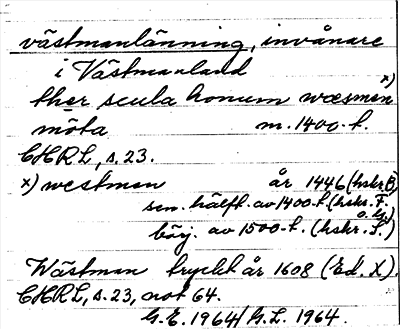 västmanlänning, invånare
i Västmanland
ther scula honum wæsmen x)
möta m. 1400-t.
CHRL, s. 23.
x) westmen år 1446 (hskr B)
sen. hälft. av 1400-t. (hskr. F. o. G.)
börj. av 1500-t. (hskr. S.)
Wästman tryckt år 1608 (Ed. X).
CHRL, s. 23, not 64.
G.E. 1964/ G.L. 1964.